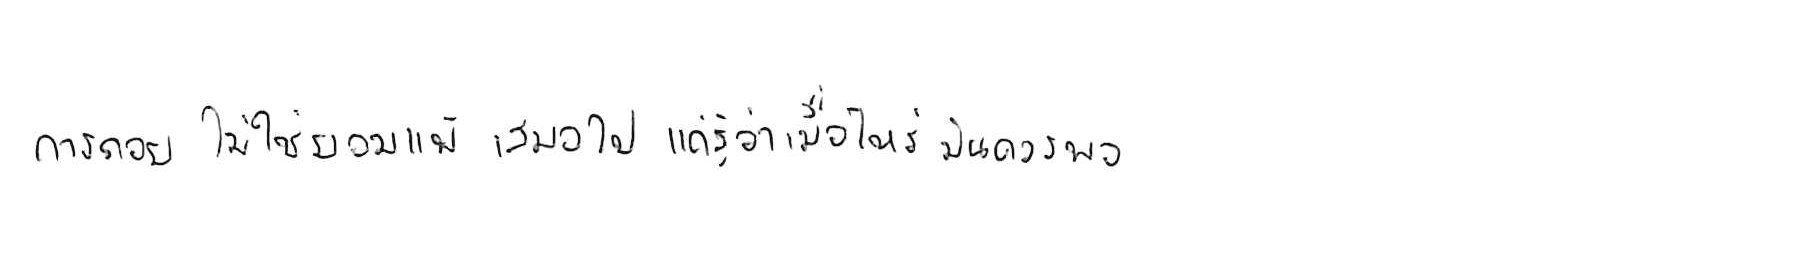 การถอย ไม่ใช่ยอมแพ้ เสมอไป แต่รู้ว่าเมื่อไหร่ มันควรพอ